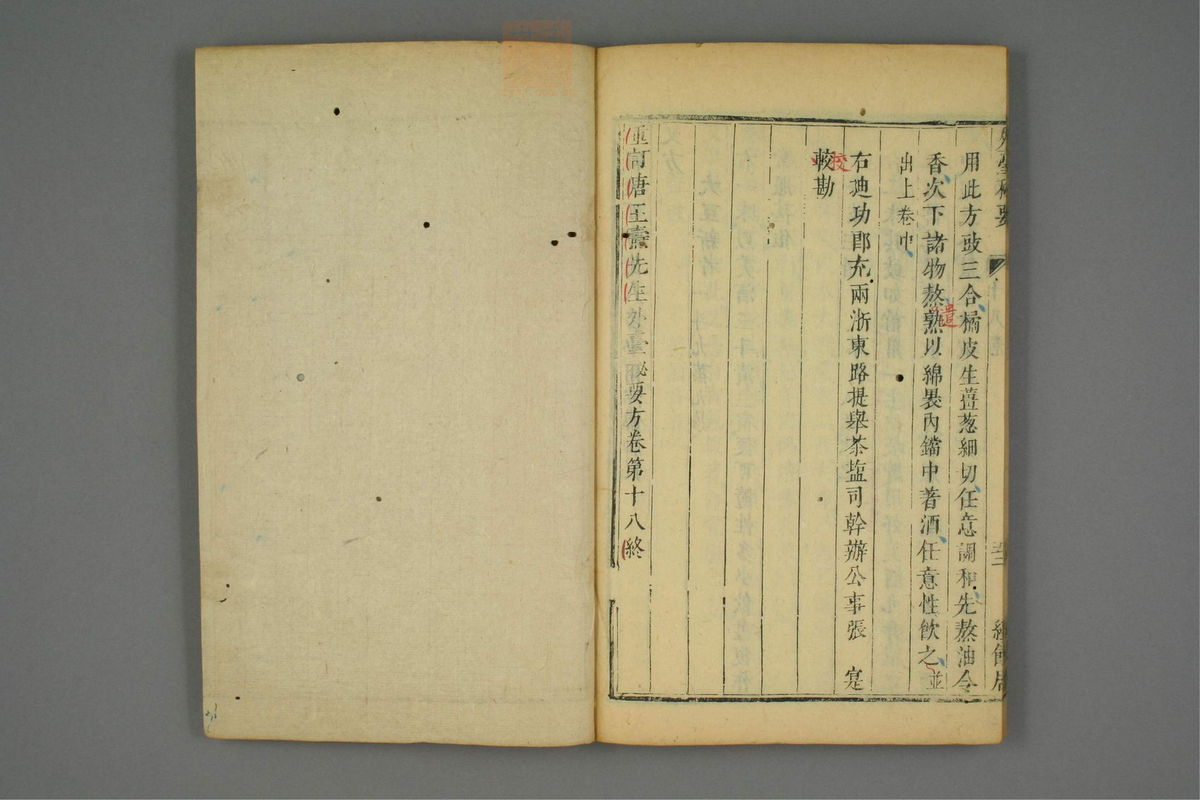 用此方豉三合橘皮生薑葱細切任意調和先熬油令
香次下諸物熬熟以綿褁內鐺中著酒任意性飲之並
出上卷中
遣
右迪功郎充兩浙東路提舉茶塩司幹辦公事張 寔
較勘
校
重訂唐王燾先生外臺秘要方卷第十八終